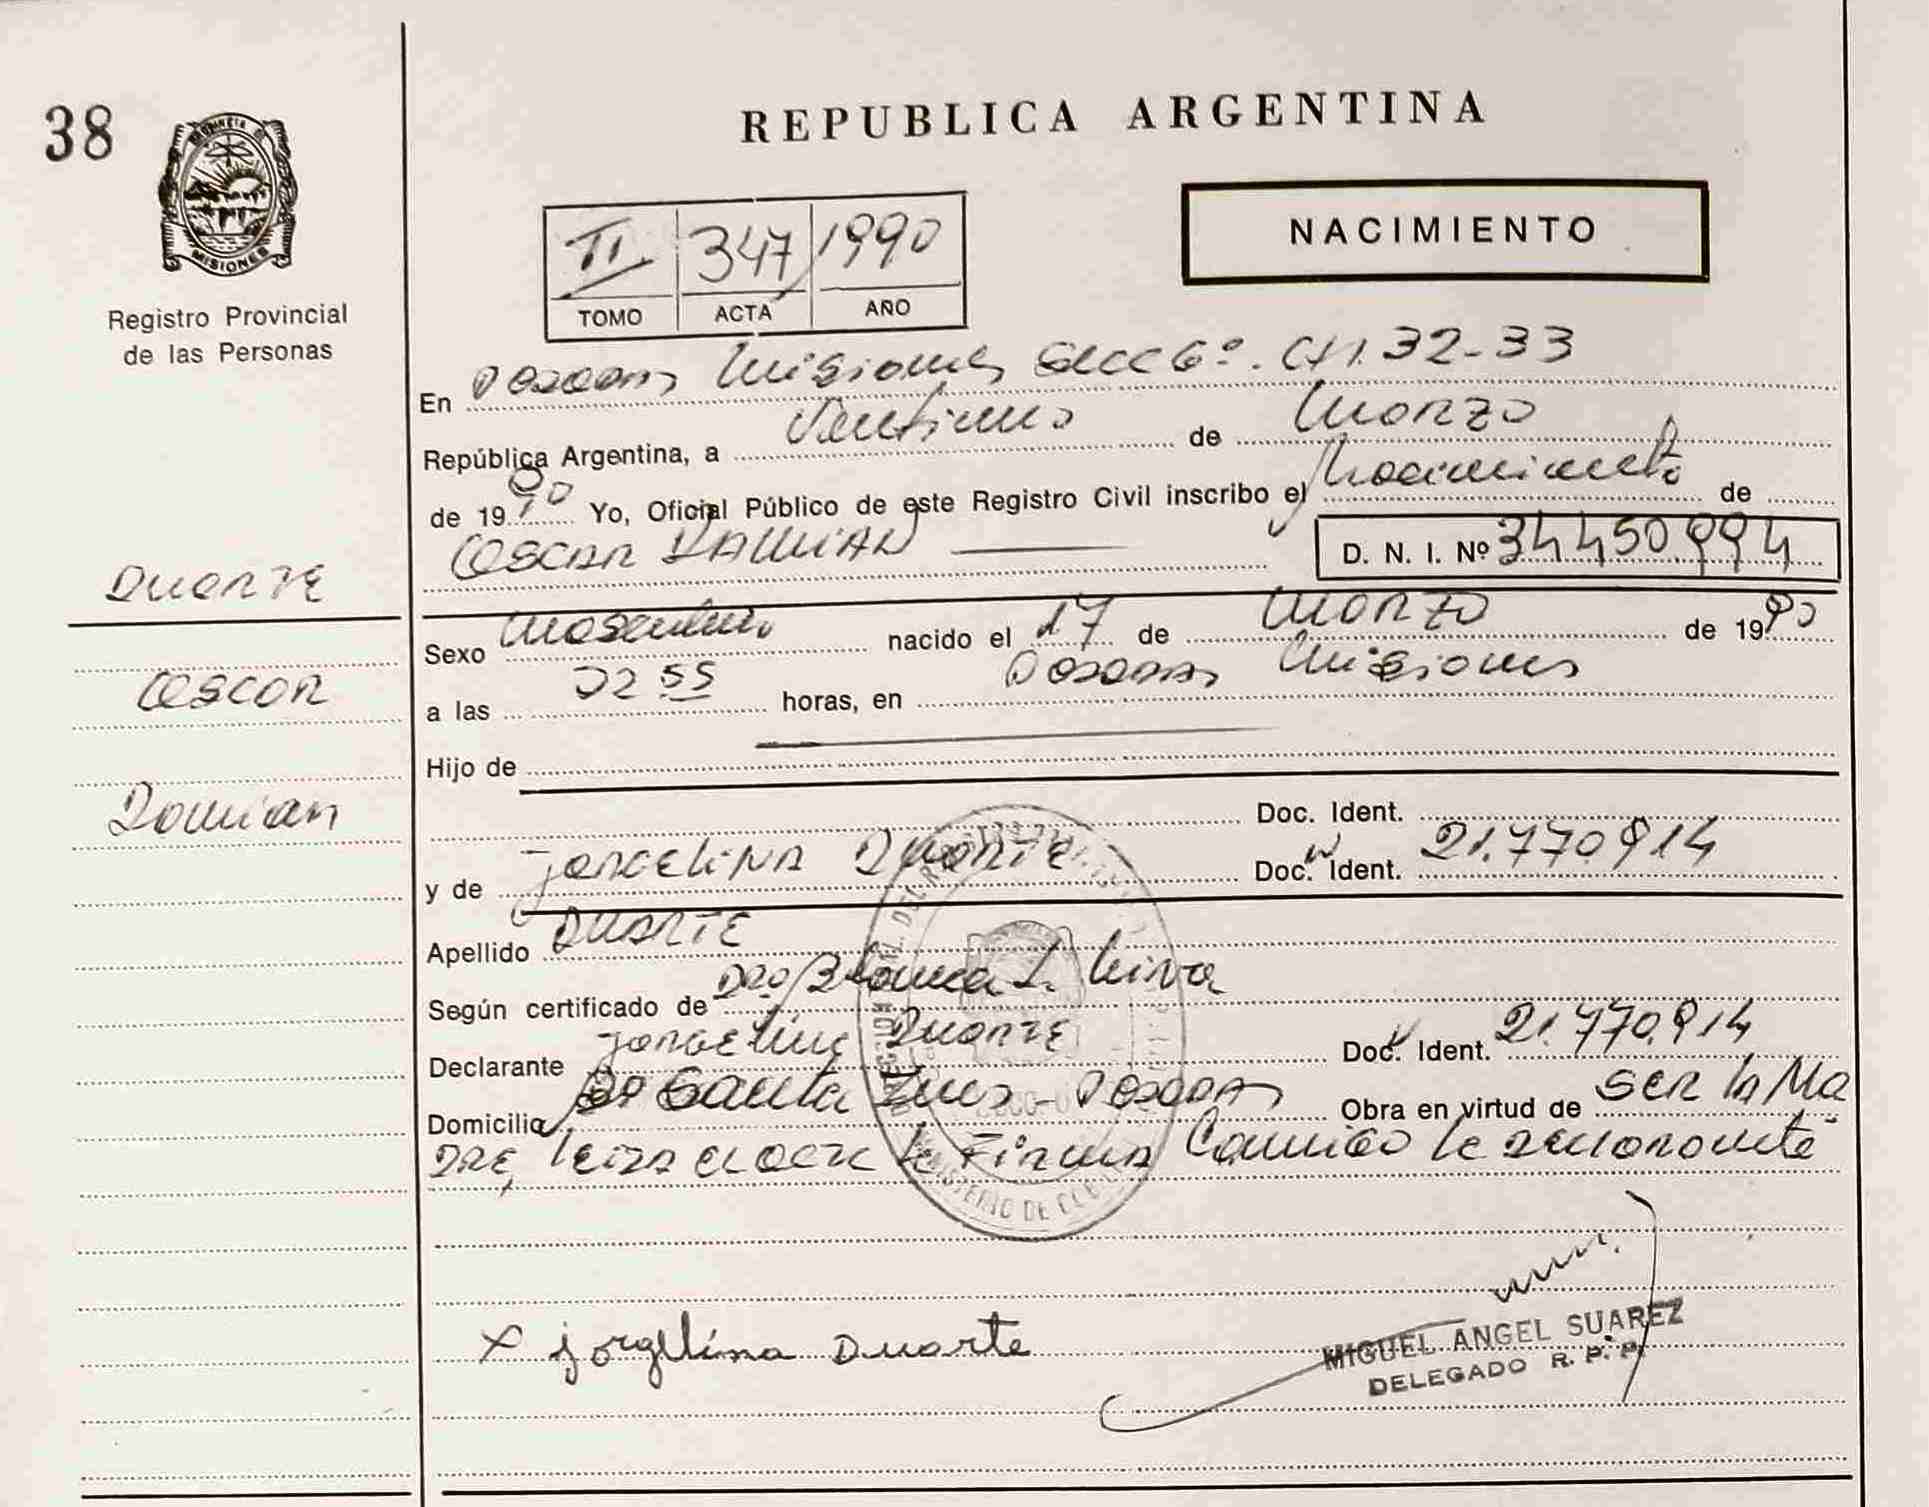 38
PROVINCIA DE
MISIONES
Registro Provincial
de las Personas
REPUBLICA ARGENTINA
NACIMIENTO
II 347 1990
TOMO ACTA AÑO
En Posadas Misiones Secc 6º. CH. 32-33
República Argentina, a Veintiuno de Marzo
de 1990 Yo, Oficial Público de este Registro Civil inscribo el Nacimiento de
OSCAR DAMIAN D. N. I. Nº 34450994
DUARTE
Sexo Masculino nacido el 17 de Marzo de 1990
OSCAR
a las 22 55 horas, en Posadas Misiones
Hijo de
Damian
Doc. Ident.
y de JORGELINA DUARTE Doc. Ident. 21.770.914
Apellido DUARTE
Según certificado de Blanca L.
Declarante Jorgelina DUARTE Doc. Ident. 21.770.914
Domicilio Bº Santa Posadas Obra en virtud de SER la Ma
DRE, leida el acta la Firma Conmigo la
x jorgelina Duarte
MIGUEL ANGEL SUAREZ
DELEGADO R. P. P.